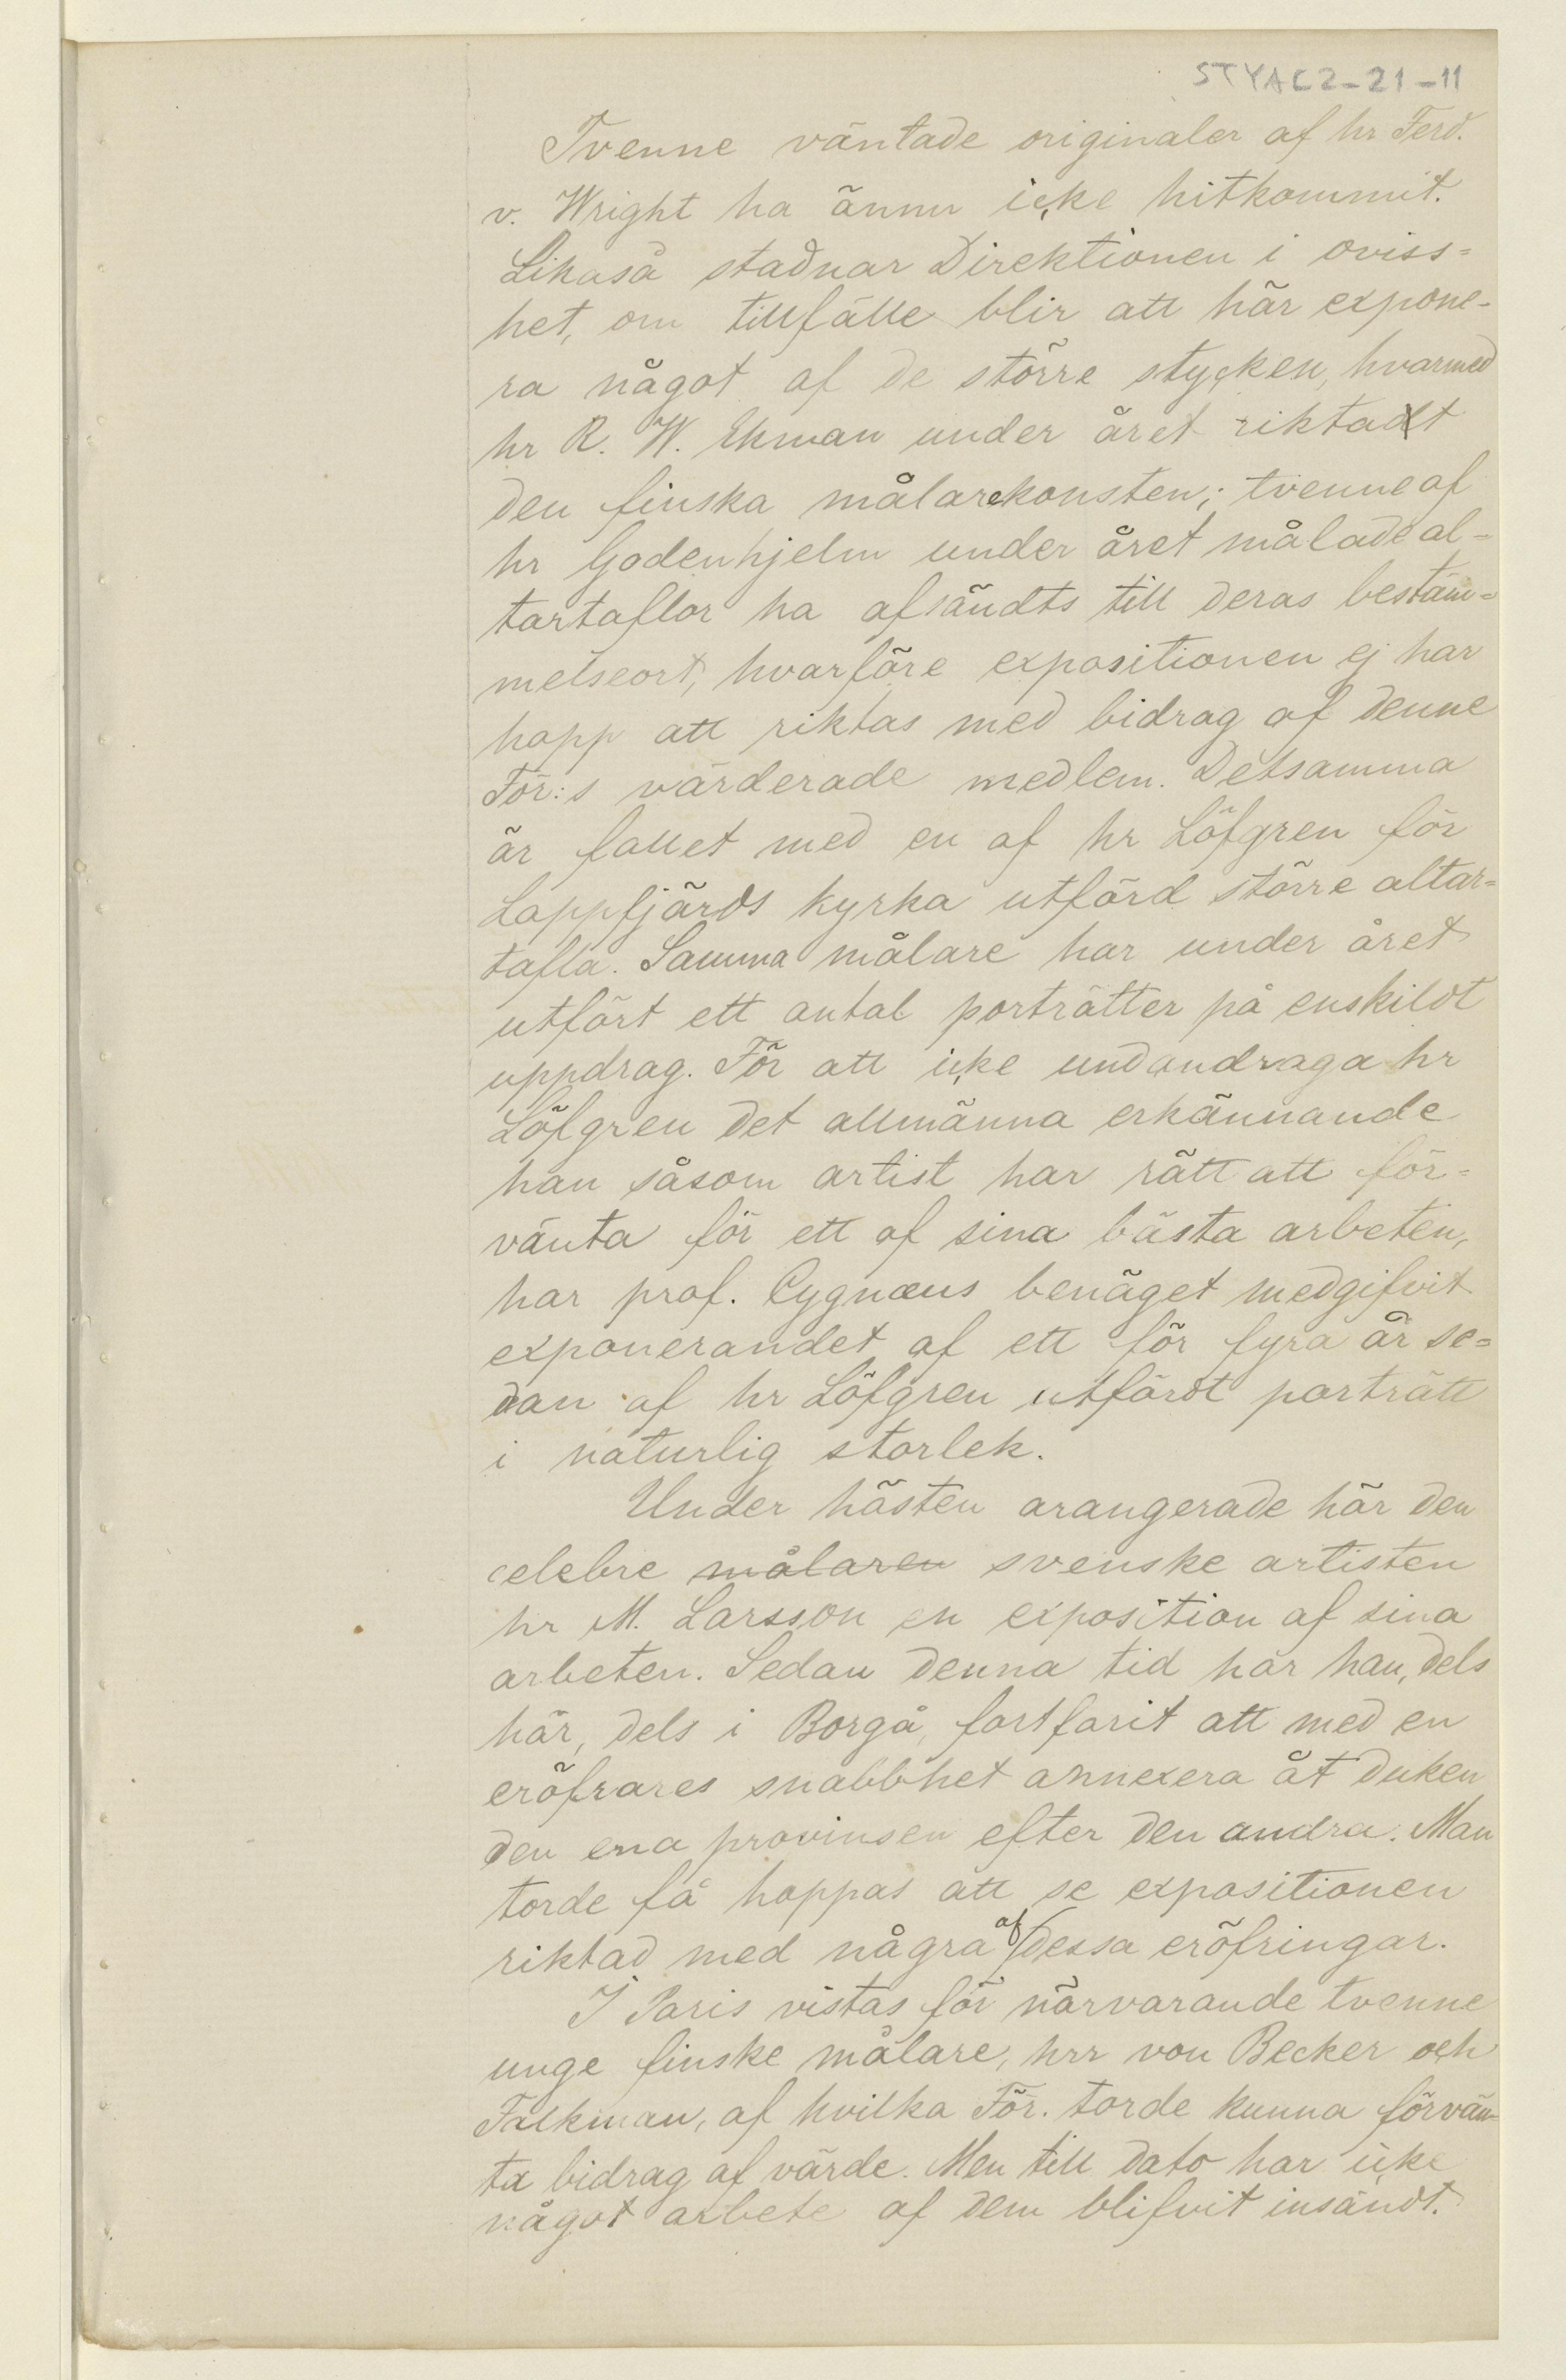 STYAC2-21-11
Tvenne väntade originaler af hr Ferd.
v. Wright ha ännu icke hitkommit.
Likaså stadnar Direktionen i oviss-
het, om tillfälle blir att här expone-
ra något af de större stycken, hvarmed
hr R. W. Ekman under året riktadt
den finska målarekonsten; tvenne af
hr Godenhjelm under året målade al-
tartaflor ha afsändts till deras bestäm-
melseort, hvarföre expositionen ej har
hopp att riktas med bidrag af denne
För:s värderade medlem. Detsamma
är fallet med en af hr Löfgren för
Lappfjärds kyrka utförd större altar-
tafla. Samma målare har under året
utfört ett antal porträtter på enskildt
uppdrag. För att icke undandraga hr
Löfgren det allmänna erkännande
han såsom artist har rätt att för-
vänta för ett af sina bästa arbeten,
har prof. Cygnæus benäget medgifvit
exponerandet af ett för fyra år se-
dan af hr Löfgren utfördt porträtt
i naturlig storlek.
Under hösten arangerade här den
celebre målaren svenske artisten
hr M. Larsson en exposition af sina
arbeten. Sedan denna tid har han, dels
här, dels i Borgå, fortfarit att med en
eröfrares snabbhet annexera åt duken
den ena provinsen efter den andra. Man
torde få hoppas att se expositionen
riktad med några af dessa eröfringar.
I Paris vistas för närvarande tvenne
unge finske målare, hrr von Becker och
Falkman, af hvilka För. torde kunna förvän-
ta bidrag af värde. Men till dato har icke
något arbete af dem blifvit insändt.